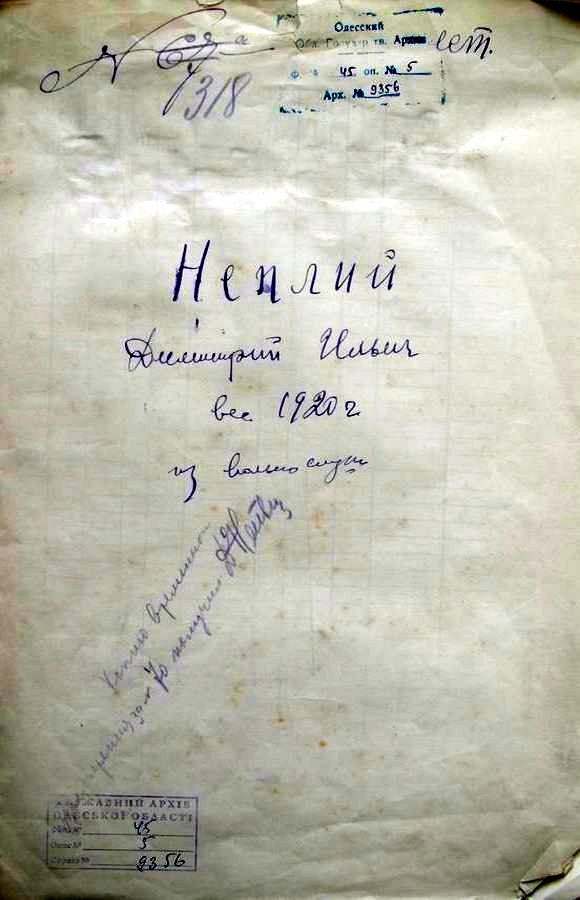 лет.
7318
Одесский
Обл. Государств. Архив
Ф. № 45 оп. № 5
Арх. № 9356
Неплий
Димитрий Ильич
вес 1920 г
из вольнослуш
Копию временно
получил
ДЕРЖАВНИЙ АРХІВ
ОДЕСЬКОЇ ОБЛАСТІ
Фонд № 45
Опис № 5
Справа № 9356